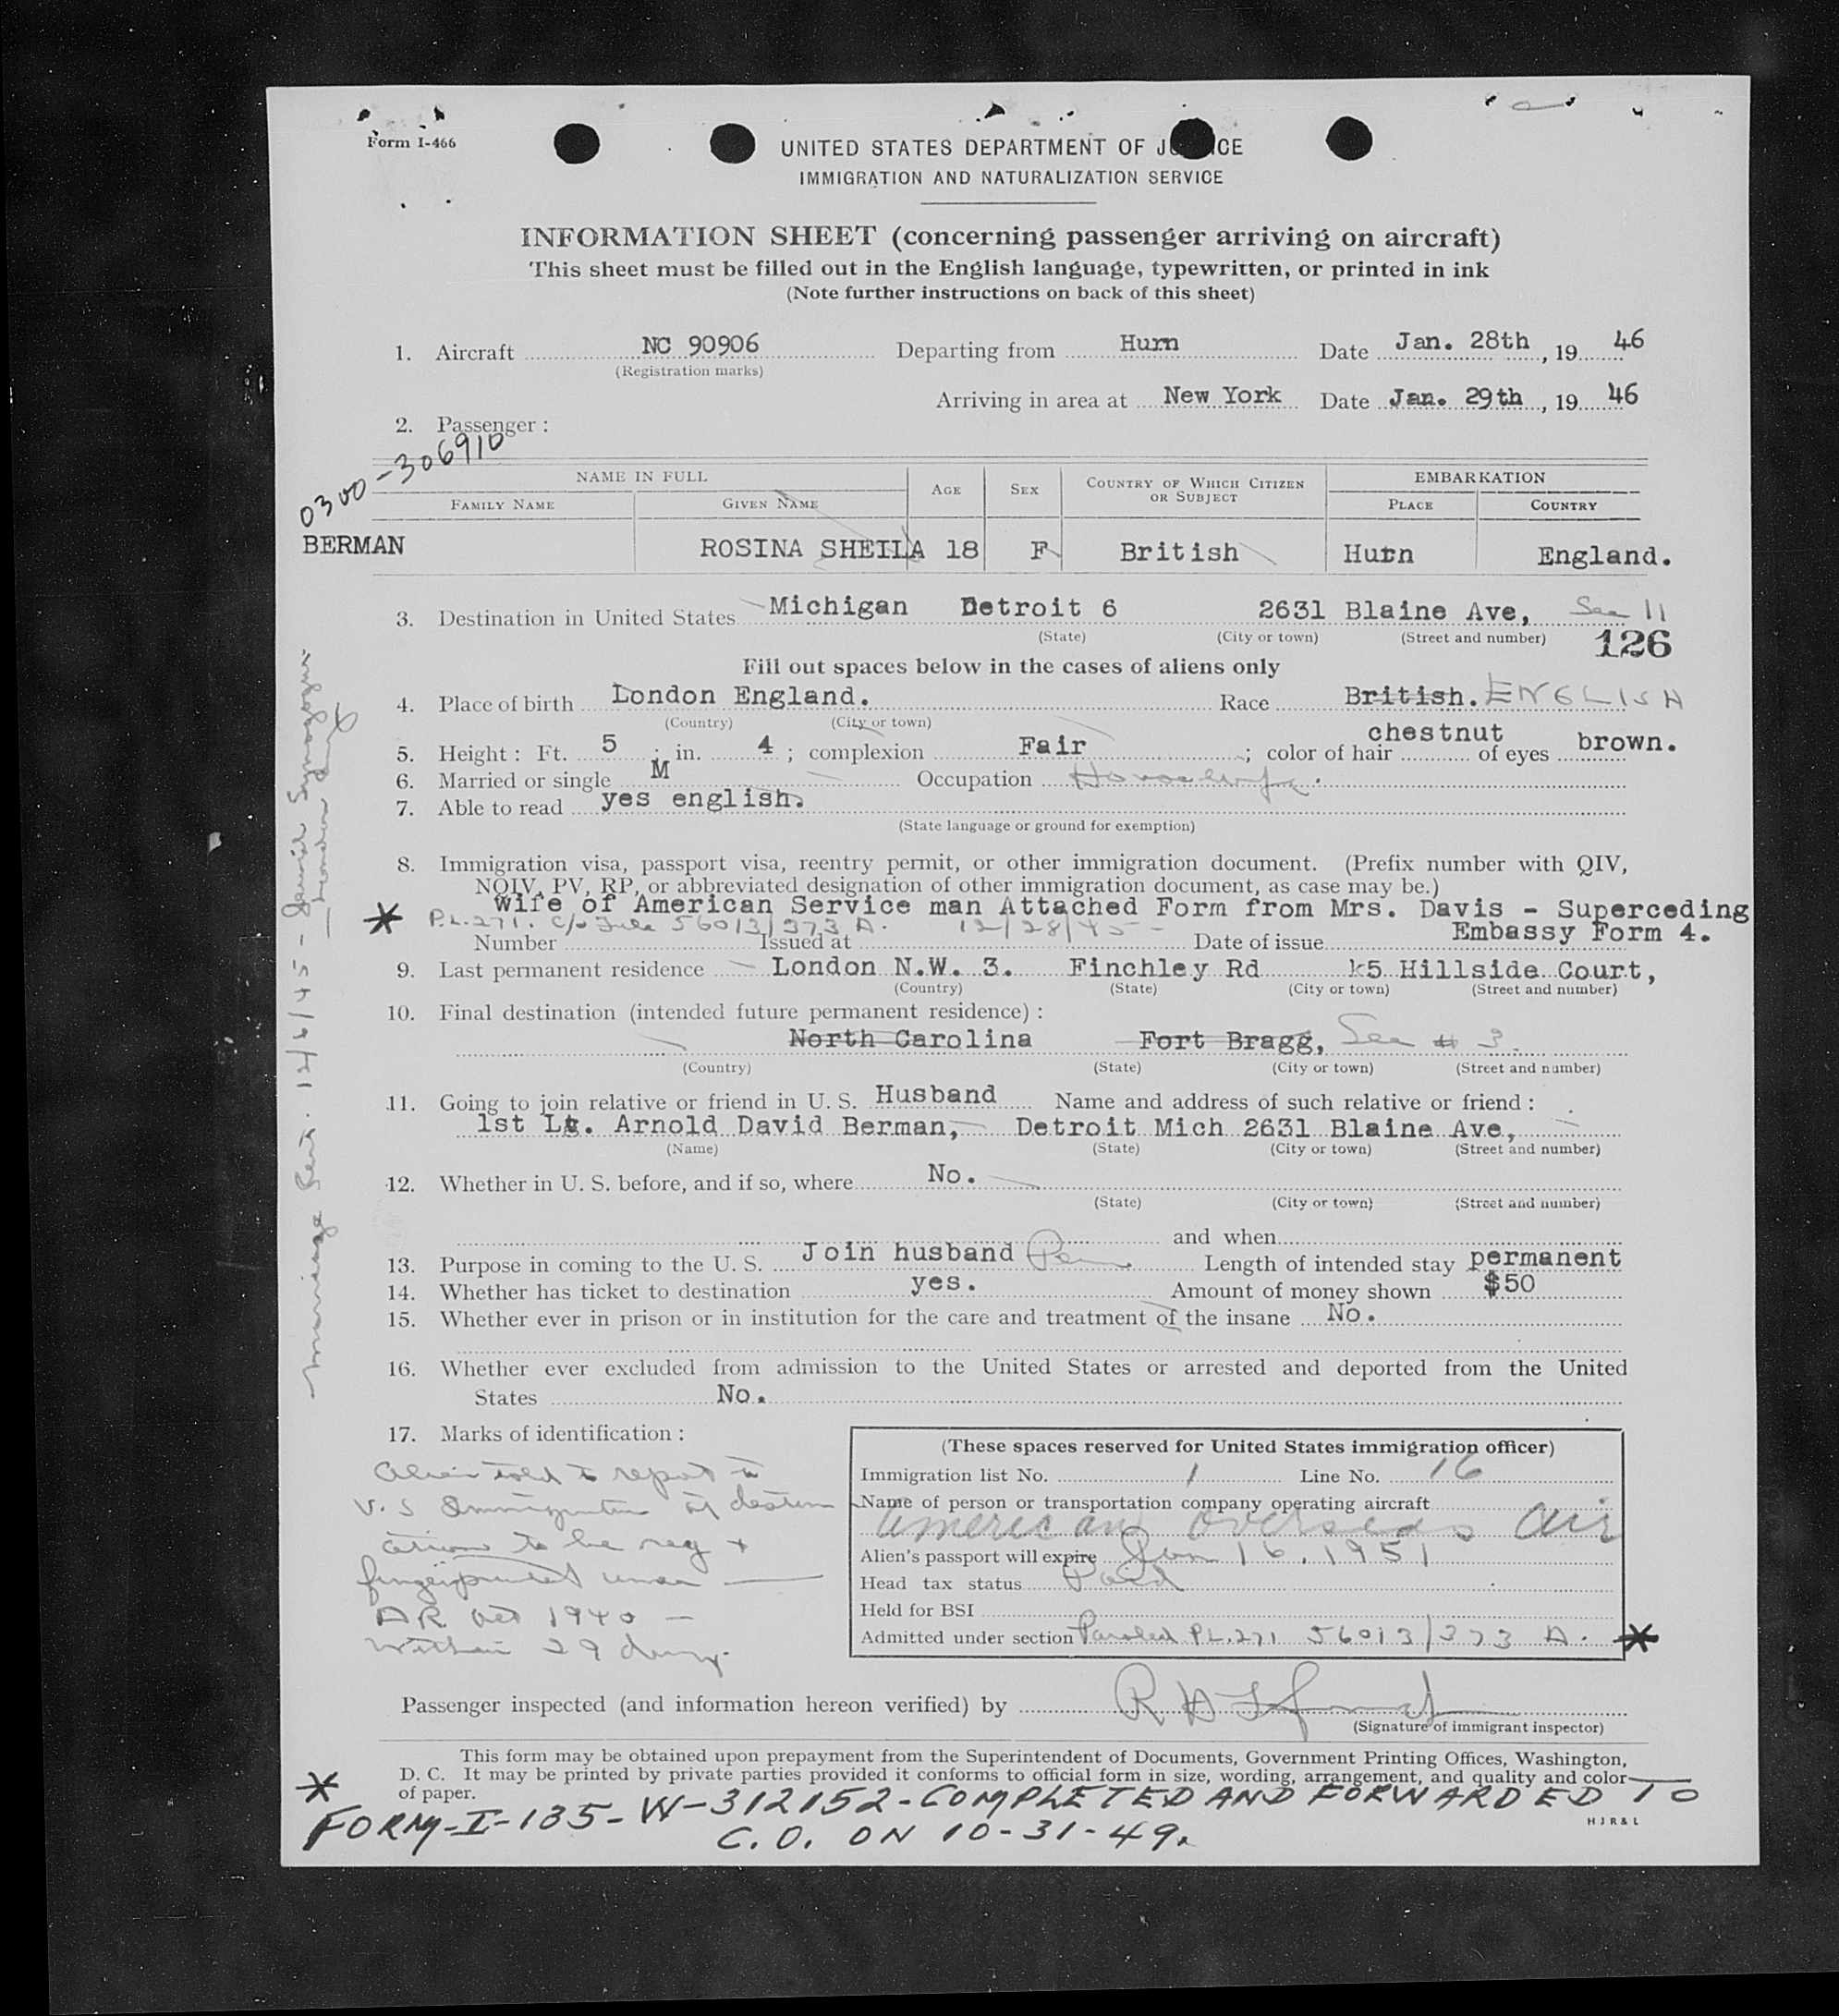 Form I-466
UNITED STATES DEPARTMENT OF J   ICE
IMMIGRATION AND NATURALIZATION SERVICE
INFORMATION SHEET (concerning passenger arriving on aircraft)
This sheet must be filled out in the English language, typewritten, or printed in ink
(Note further instructions on back of this sheet)
1. Aircraft NC 90906 Departing from Hurn Date Jan. 28th, 1946
(Registration marks)
Arriving in area at New York Date Jan. 29th, 1946
2. Passenger:
0300-306910
NAME IN FULL AGE SEX COUNTRY OF WHICH CITIZEN OR SUBJECT EMBARKATION
FAMILY NAME GIVEN NAME PLACE COUNTRY
BERMAN ROSINA SHEILA 18 F British Hurn England.
3. Destination in United States Michigan Detroit 6 2631 Blaine Ave, See 11
(State) (City or town) (Street and number) 126
Fill out spaces below in the cases of aliens only
4. Place of birth London England. Race British. ENGLISH
(Country) (City or town)
5. Height: Ft. 5; in. 4; complexion Fair; color of hair chestnut of eyes brown.
6. Married or single M Occupation Housewife.
7. Able to read yes english.
(State language or ground for exemption)
8. Immigration visa, passport visa, reentry permit, or other immigration document. (Prefix number with QIV,
NQIV, PV, RP, or abbreviated designation of other immigration document, as case may be.)
wife of American Service man Attached Form from Mrs. Davis - Superceding
* P.L.271. c/o File 56013/373 A. 12/28/45 -
Embassy Form 4.
Number Issued at Date of issue
9. Last permanent residence London N.W. 3. Finchley Rd k5 Hillside Court,
(Country) (State) (City or town) (Street and number)
10. Final destination (intended future permanent residence):
North Carolina Fort Bragg, See # 3.
(Country) (State) (City or town) (Street and number)
11. Going to join relative or friend in U. S. Husband Name and address of such relative or friend:
1st Lt. Arnold David Berman, Detroit Mich 2631 Blaine Ave,
(Name) (State) (City or town) (Street and number)
12. Whether in U. S. before, and if so, where No.
(State) (City or town) (Street and number)
and when
13. Purpose in coming to the U. S. Join husband Per Length of intended stay permanent
14. Whether has ticket to destination yes. Amount of money shown $50
15. Whether ever in prison or in institution for the care and treatment of the insane No.
16. Whether ever excluded from admission to the United States or arrested and deported from the United
States No.
17. Marks of identification:
Alien told to report to
U.S Immigration at destin
ation to be reg +
fingerprinted under
AR Act 1940 -
Within 29 days.
(These spaces reserved for United States immigration officer)
Immigration list No. 1 Line No. 16
Name of person or transportation company operating aircraft
American Overseas Air
Alien's passport will expire Jan 16, 1951
Head tax status Paid
Held for BSI
Admitted under section Paroled PL.271 56013/373 A. *
Passenger inspected (and information hereon verified) by
(Signature of immigrant inspector)
This form may be obtained upon prepayment from the Superintendent of Documents, Government Printing Offices, Washington,
D. C. It may be printed by private parties provided it conforms to official form in size, wording, arrangement, and quality and color
of paper.
* FORM-I-135-W-312152-COMPLETED AND FORWARDED TO
C.O. ON 10-31-49.
HJR&L
Marriage Cert. 12/6/45 - Jewish Synagogue
London Eng